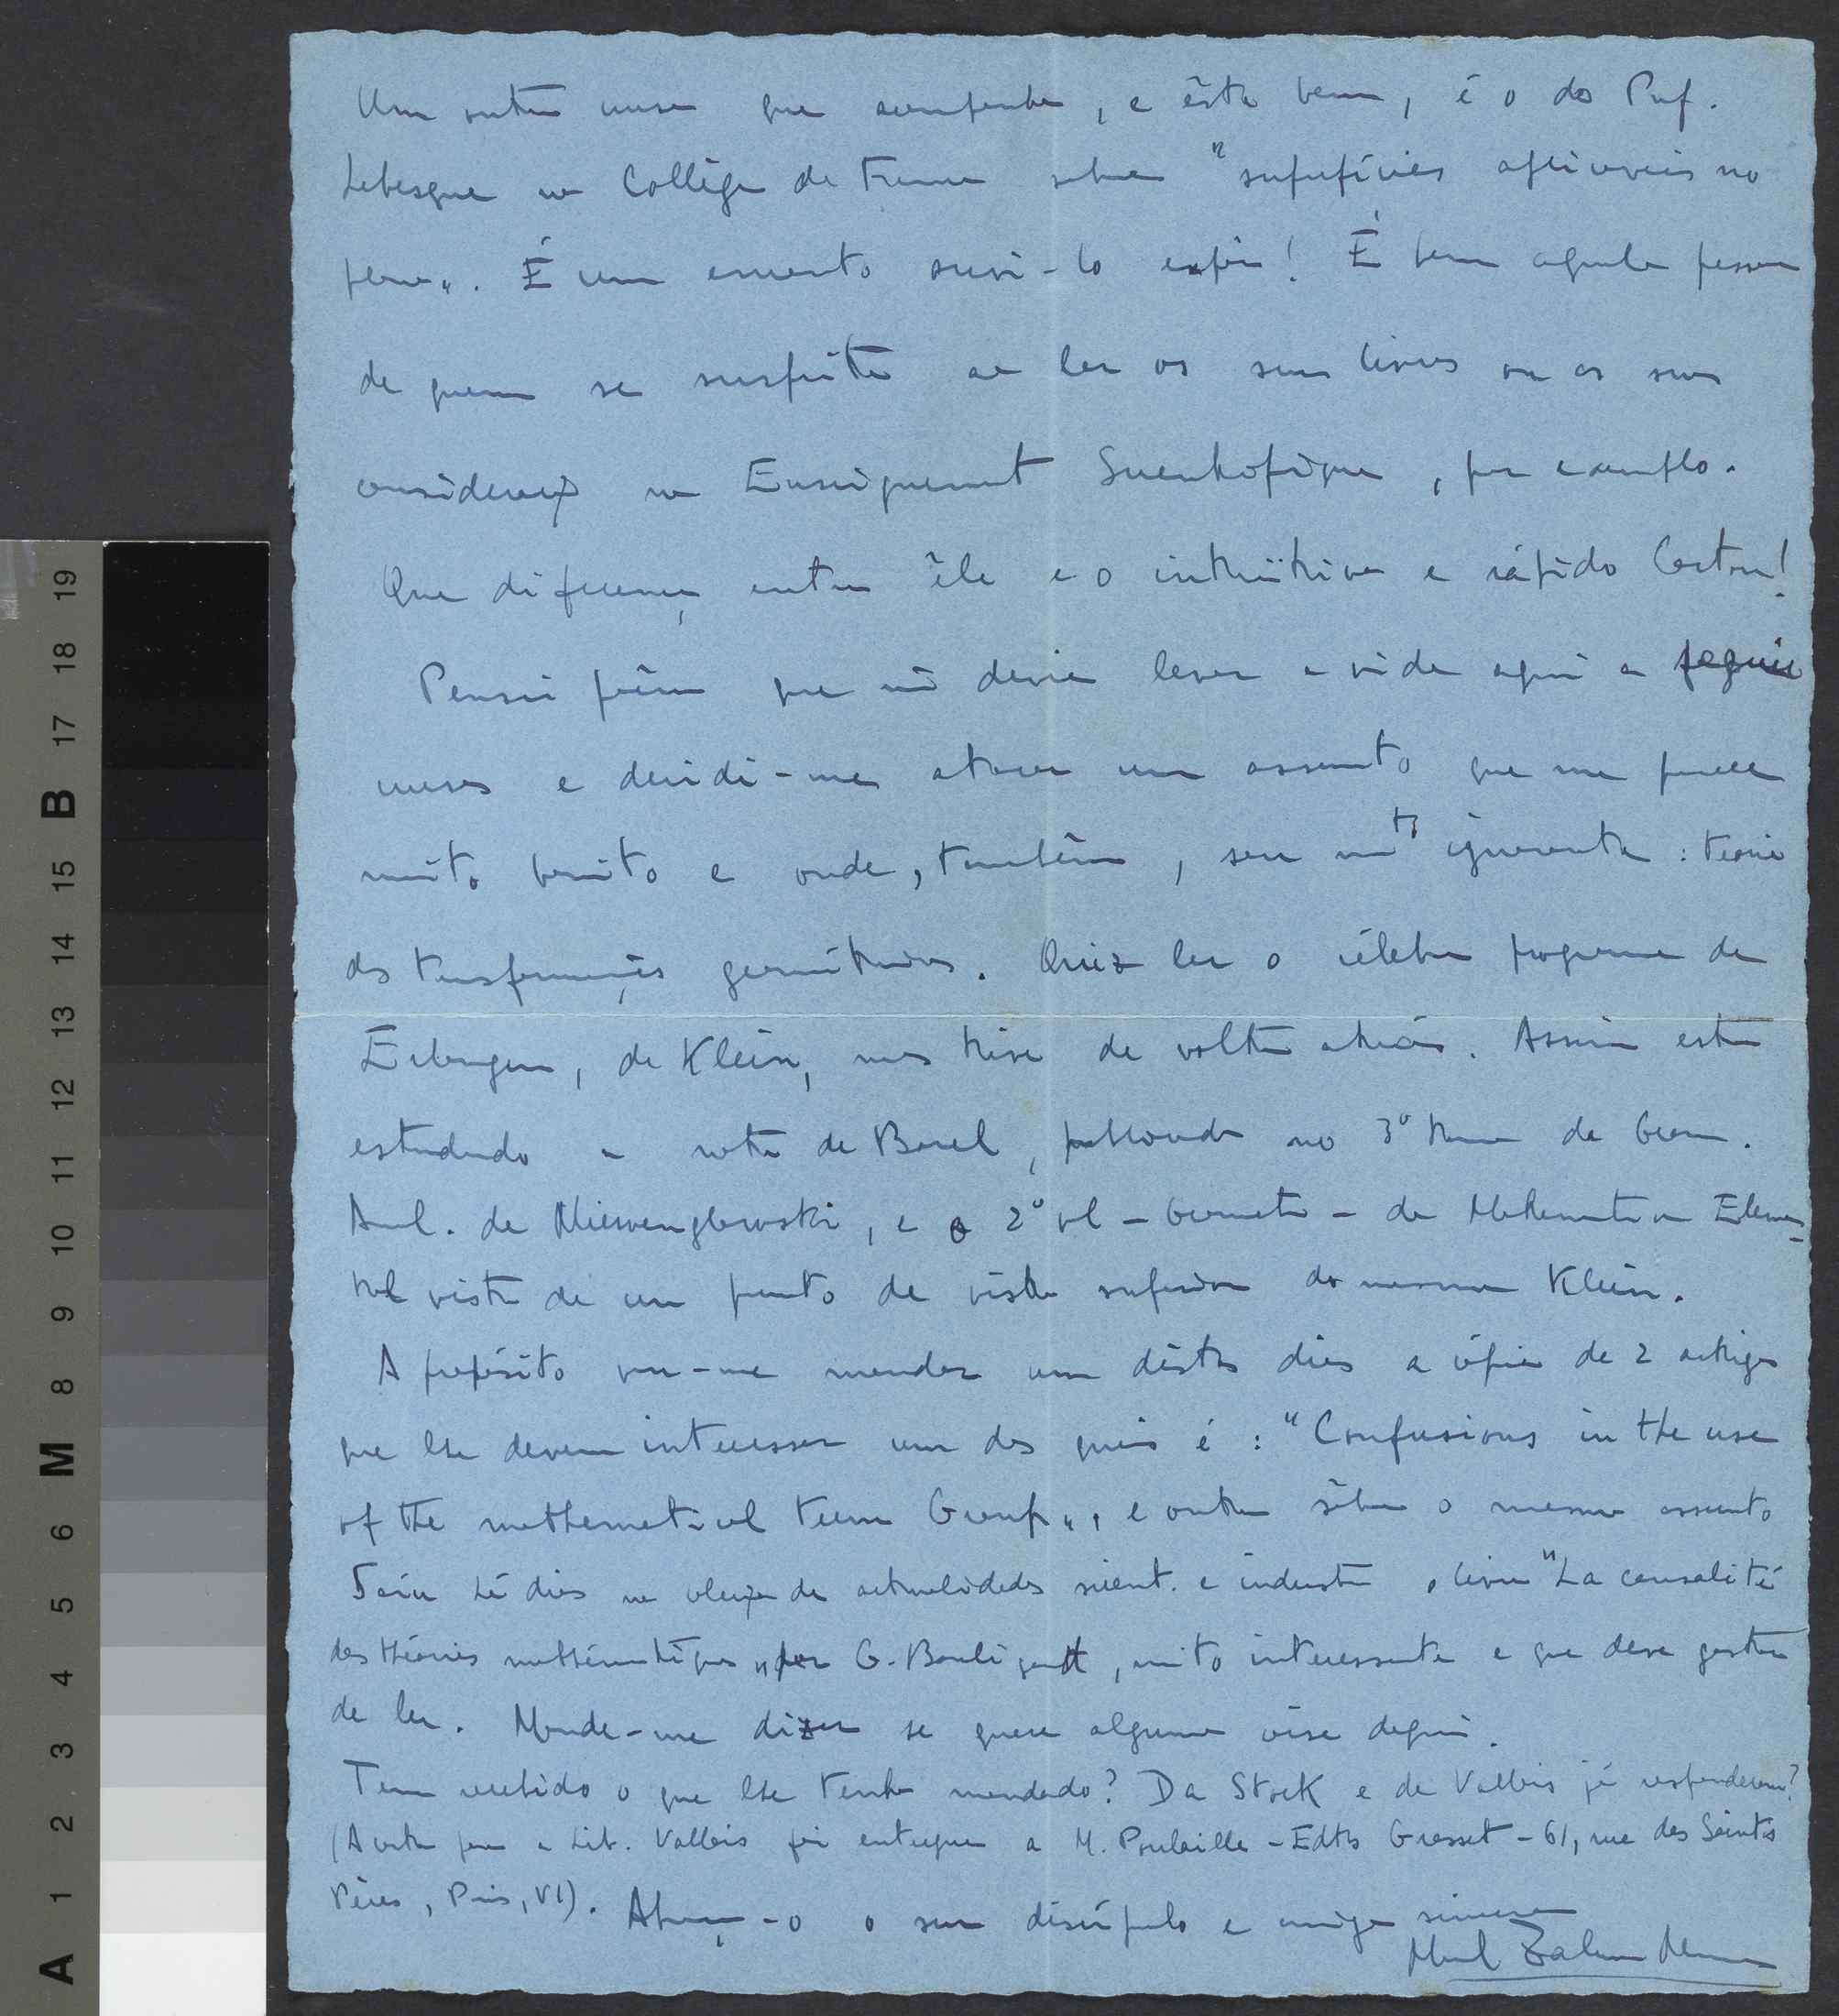 Um outro curso que acompanho, e êste bem, é o do Prof.
Lebesgue no Collège de France sobre "superfícies aplicáveis no
plano". É um encanto ouvi-lo expôr! É bem aquela pessoa
de quem se suspeita ao ler os seus livros ou as suas
considerações no Enseignement , por exemplo.
Que diferença entre êle e o intuitivo e rápido Cartan!
Pensei porém que não devia levar a vida aqui a seguir
cursos e decidi-me atacar um assunto que me parece
muito bonito e onde, também, sou mto ignorante: teoria
das transformações geométricas. Quiz ler o célebre programa de
Erlangen, de Klein, mas tive de voltar atrás. Assim estou
estudando a nota de Borel, publicada no 3º tomo da Geom.
Anal. de Niewenglowski, e o 2º vol - Geometria - da Matematica Elemen-
tal vista de um ponto de vista superior do mesmo Klein.
A propósito vou-me mandar um dêstes dias a cópia de 2 artigos
que lhe devem interessar um dos quais é: "Confusions in the use
of the mathematical term Group", e outro sôbre o mesmo assunto
Saíu há dias na coleção de actualidades scient. e industr. o livro "La causalité
des théories mathématiques" por G. Bouligand, muito interessante e que deve gostar
de ler. Mande-me dizer se quere alguma coisa daqui.
Tem recebido o que lhe tenho mandado? Da Stock e da Vallois já responderam?
(A carta para a Lib. Vallois foi entregue a M. Poulaille - Edts Grasset - 61, rue des Saints
Pères, Paris, VI). Abraça-o o seu discípulo e amigo sincero